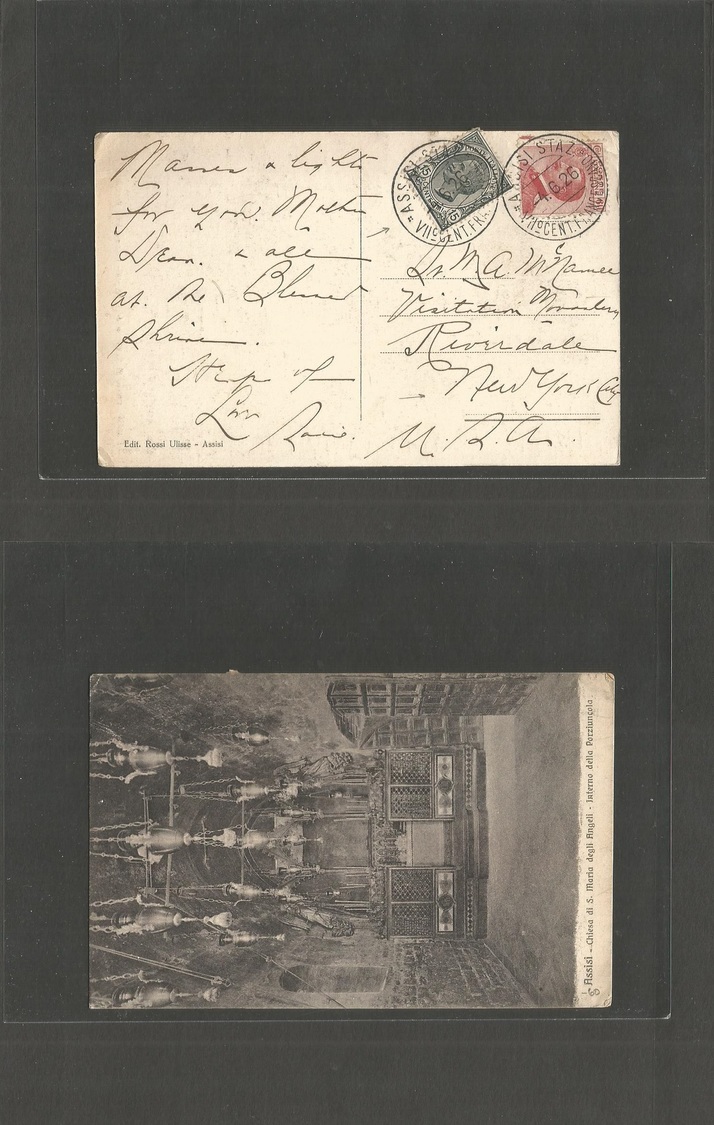 Masses & lights
for you. Mother
Dear. & all
at the Blessed
Shrine.
Heaps of
Love
Edit. Rossi Ulisse - Assisi
ASSISI STAZIONE
4.6.26
VIIº CENT. FRANC
15
15
Sr. M. A. McNamee
Visitation Monastery
Riverdale
New York City
U. S. A.
Assisi - Chiesa di S. Maria degli Angeli - Interno della Porziuncola